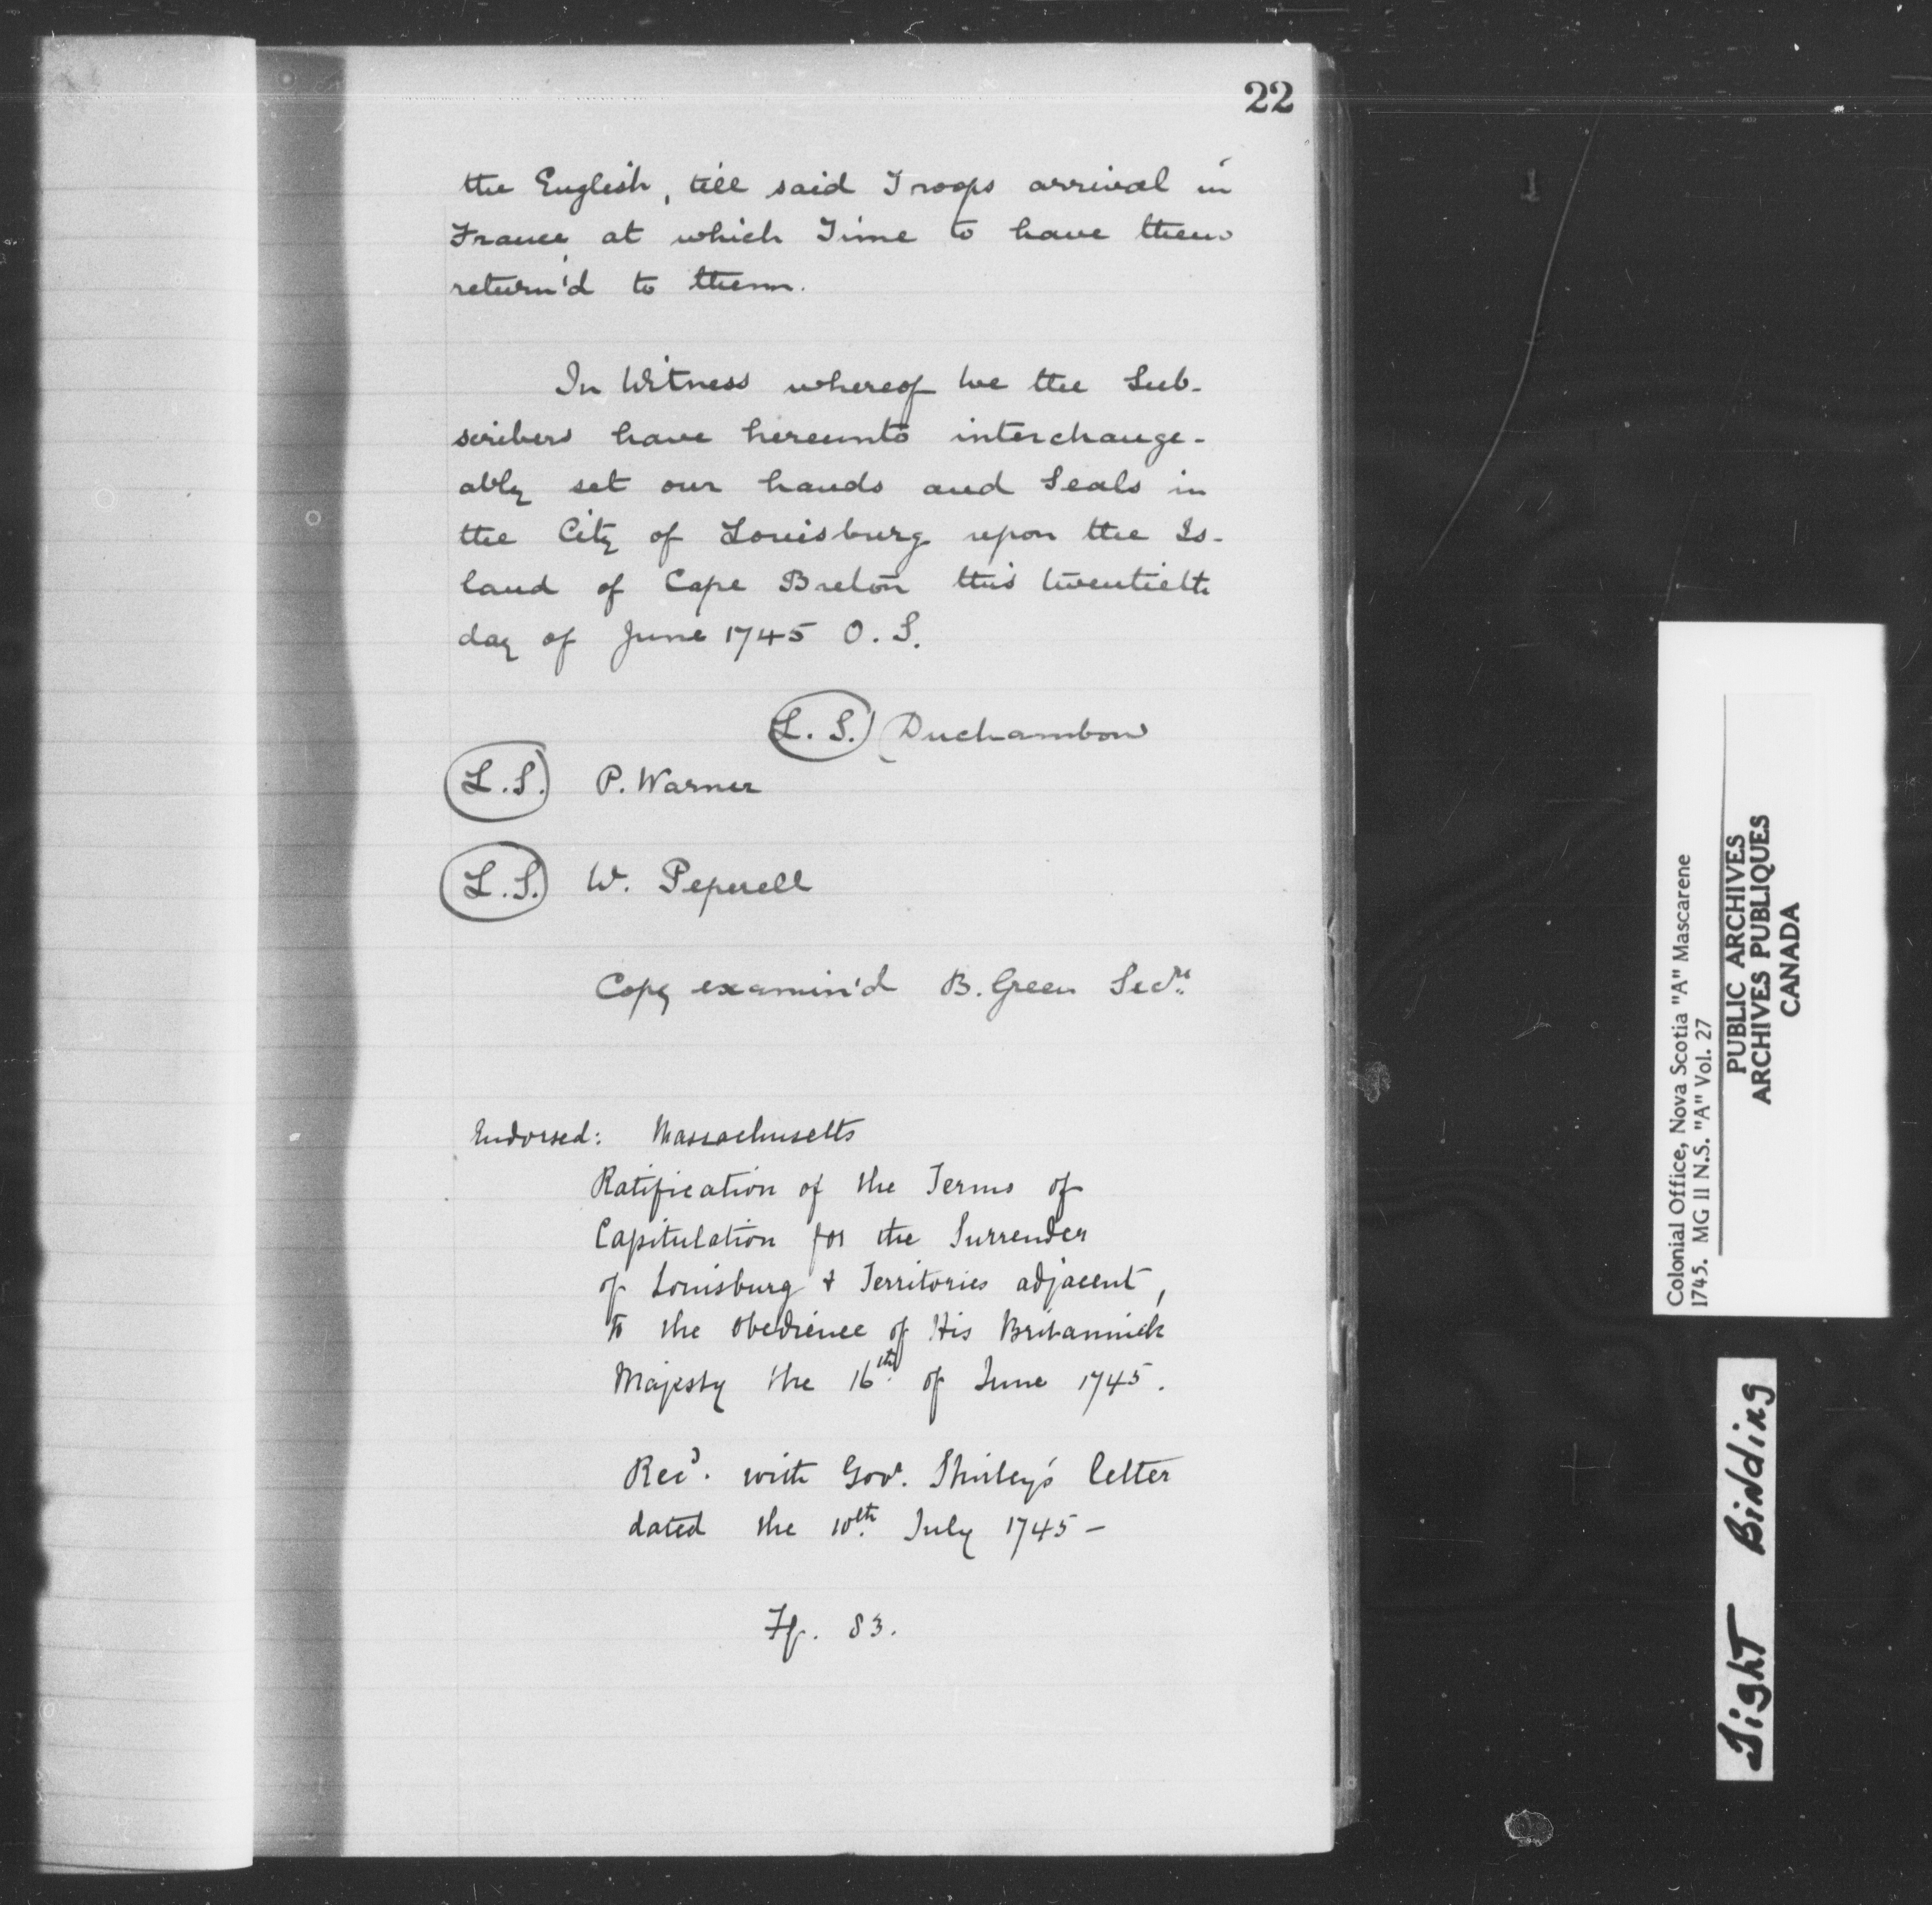 22
the English, till said Troops arrival in
France, at which Time to have them
return'd to them.
In Witness whereof We the Sub-
scribers have hereunto interchange-
ably set our hands and Seals in
the City of Louisburg upon the Is-
land of Cape Breton this twentieth
day of June 1745 O. S.
L. S. Duchambon
L. S. P. Warner
L. S. W. Peperell
Copy examin'd B. Green Secry.
Endorsed: Massachusetts
Ratification of the Terms of
Capitulation for the Surrender
of Louisburg & Territories adjacent,
to the obedience of His Britannick
Majesty the 16th. of June 1745.
Recd. with Govr. Shirley's letter
dated the 10th. July 1745 —
Ff. 83.
Colonial Office, Nova Scotia "A" Mascarene
1745. MG 11 N.S. "A" Vol. 27
PUBLIC ARCHIVES
ARCHIVES PUBLIQUES
CANADA
Tight Binding